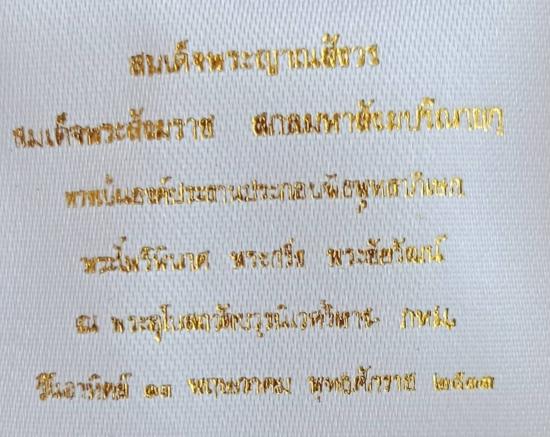 สมเด็จพระญาณสังวร
สมเด็จพระสังฆราช สกลมหาสังฆปริณายก
ทรงเป็นองค์ประธานประกอบพิธีพุทธาภิเษก
พระไพรีพินาศ พระกริ่ง พระชัยวัฒน์
ณ พระอุโบสถวัดบวรนิเวศวิหาร กทม.
วันอาทิตย์ พฤษภาคม พุทธศักราช